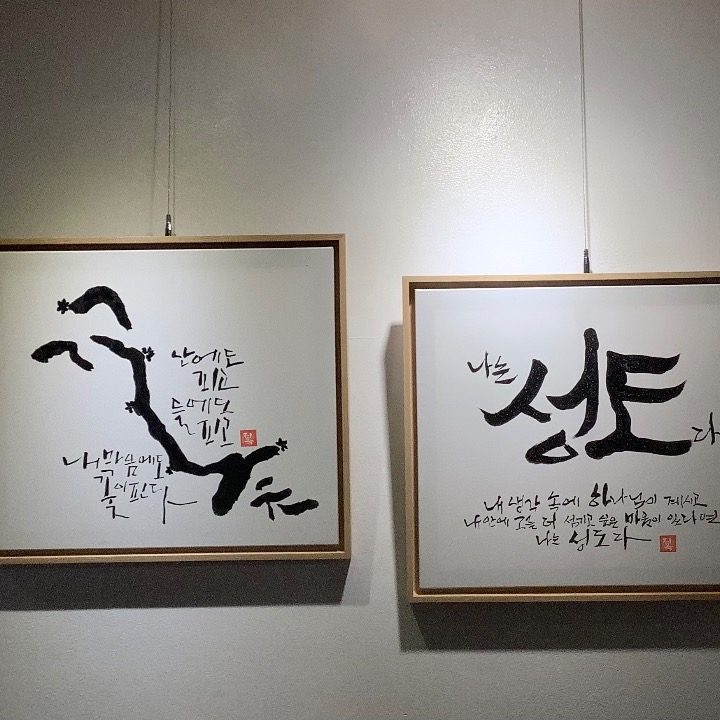 꽃
산에도
피고
들에도
피고
내 마음에도
꽃이 핀다
나는 성도다
내 생각 속에 하나님이 계시고
내 안에 오늘 더 섬기고 싶은 마음이 있다면
나는 성도다